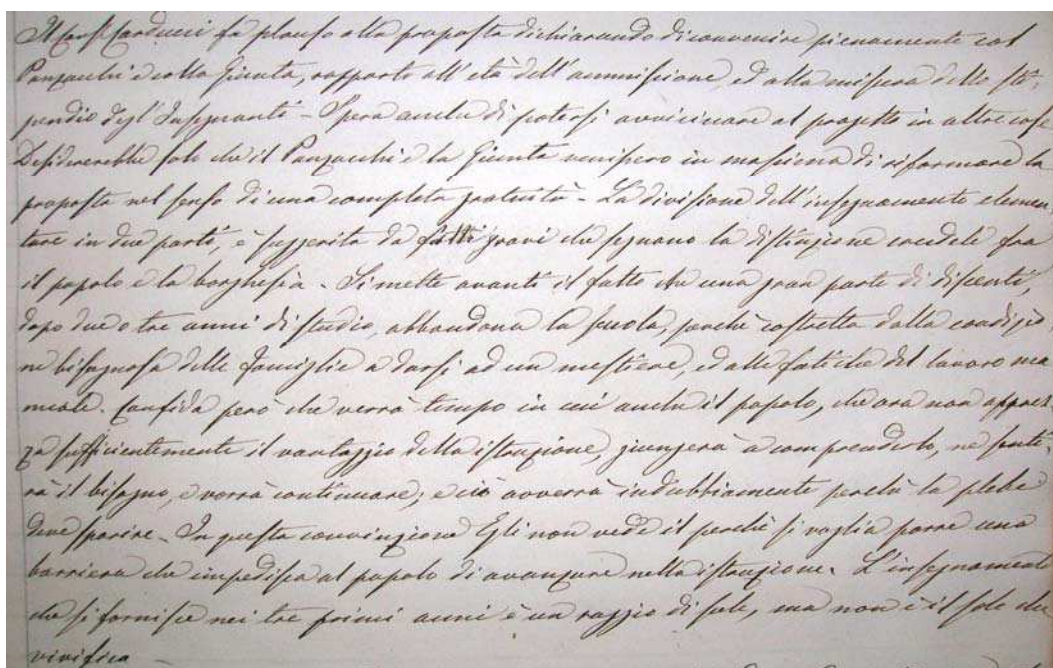 Il Cons. Carducci fa plauso alla proposta dichiarando di convenire pienamente col
Panzacchi e colla Giunta, rapporto all'età dell'ammissione, ed alla misura dello sti,
pendio degl'Insegnanti - Spera anche di potersi avvicinare al progetto in altre cose
Desidererebbe solo che il Panzacchi e la Giunta venissero in massima di riformare la
proposta nel senso di una completa gratuità - La divisione dell'insegnamento elemen,
tare in due parti, è suggerita da fatti gravi che segnano la distinzione crudele fra
il popolo e la borghesia - Si mette avanti il fatto che una gran parte di discenti,
dopo due o tre anni di studio, abbandona la scuola, perchè costretta dalla condizio,
ne bisognosa delle famiglie a darsi ad un mestiere, ed alle fatiche del lavoro ma
nuale. Confida però che verrà tempo in cui anche il popolo, che ora non apprez,
za sufficientemente il vantaggio della istruzione, giungerà a comprenderlo, ne senti,
rà il bisogno, e vorrà continuare; e ciò avverrà indubbiamente perchè la plebe
deve sparire - In questa convinzione Egli non vede il perchè si voglia porre una
barriera che impedisca al popolo di avanzare nella istruzione. L'insegnamento
che si fornisce nei tre primi anni è un raggio di sole, ma non è il sole che
vivifica -